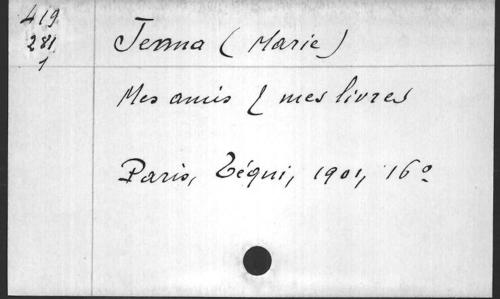 419
281
1
Jenna (Marie)
Mes amis & mes livres
Paris, Téqui, 1901, 16º